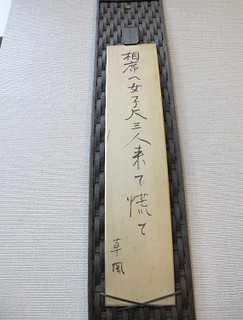 相席へ女子大三人来て慌て
草風